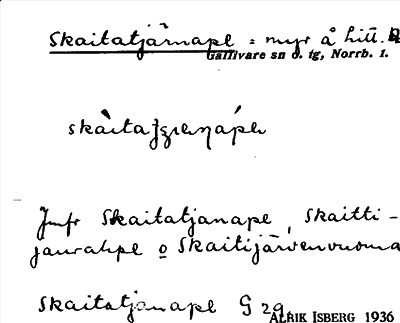 Skaitatjärnape = myr å hitt.
Gällivare sn o. tg, Norrb. 1.
Jmfr Skaitatjanape, Skaitti-
jaurahpe o Skaitijärvenvuoma
Skaitatjanape G 29
ALRIK ISBERG 1936